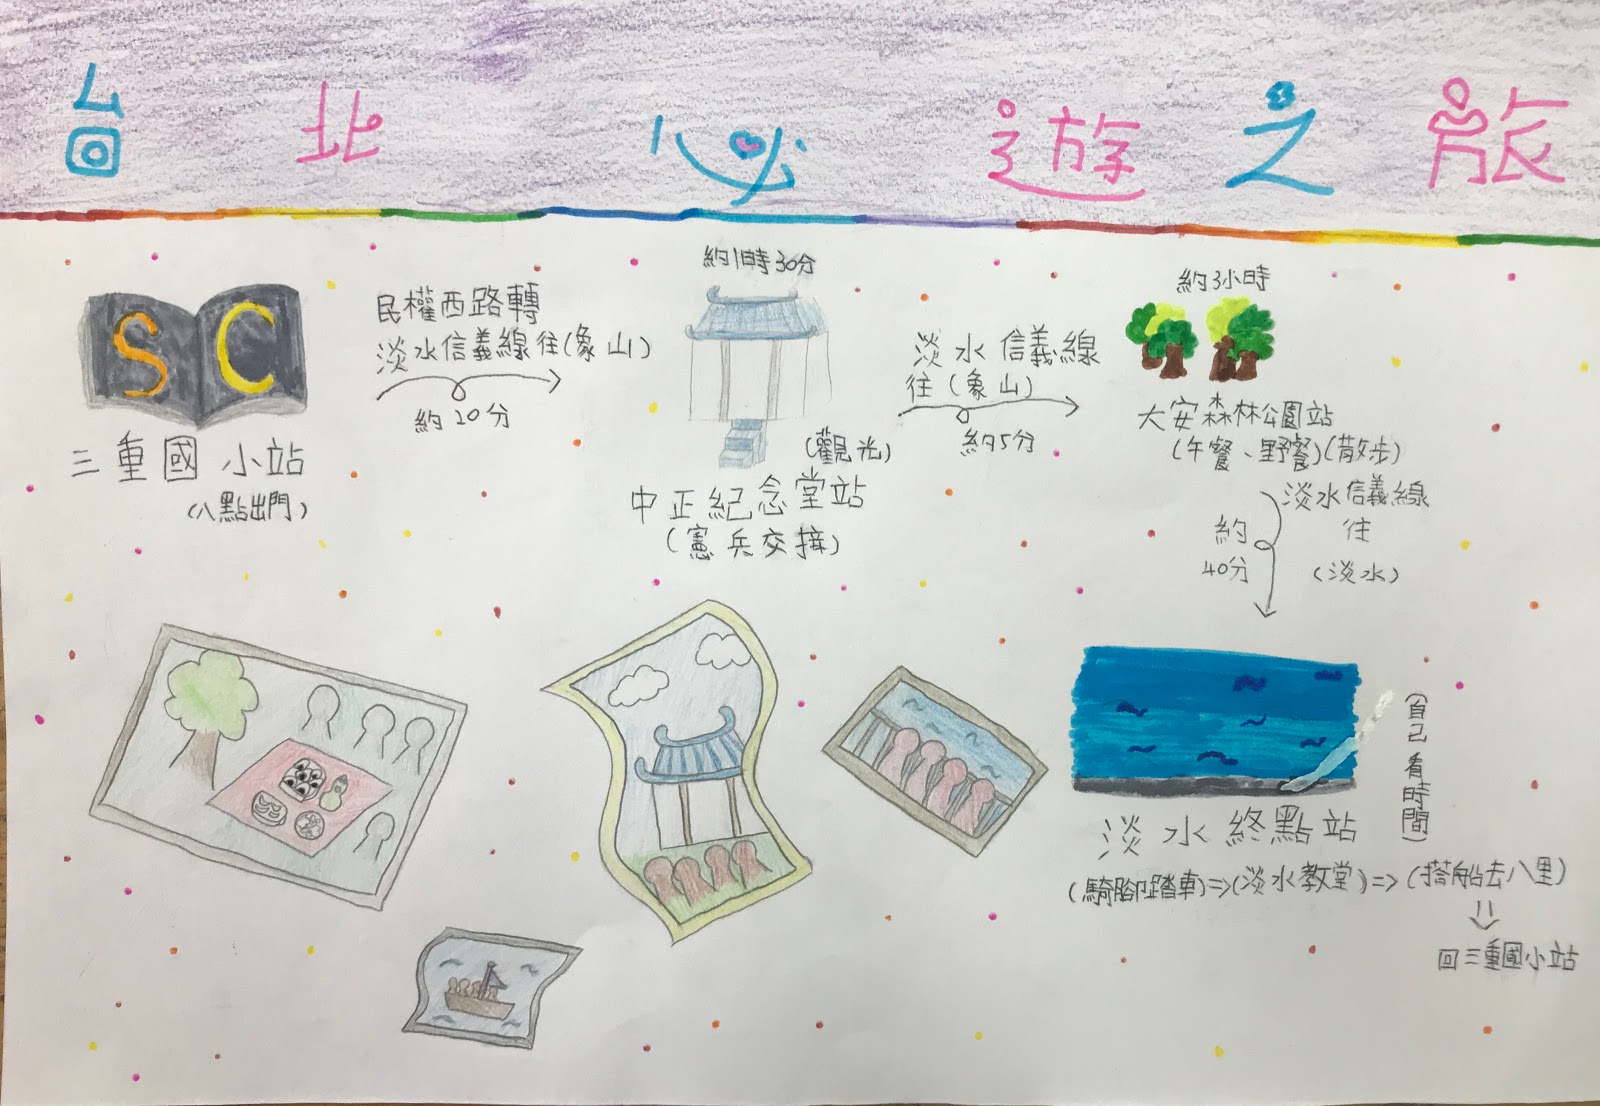 台北必遊之旅
SC
三重國小站
(八點出門)
民權西路轉
淡水信義線往(象山)
約20分
約1時30分
(觀光)
中正紀念堂站
(憲兵交接)
淡水信義線
往(象山)
約5分
約3小時
大安森林公園站
(午餐、野餐)(散步)
淡水信義線
往
(淡水)
約
40分
(自己看時間)
淡水終點站
(騎腳踏車)=>(淡水教堂)=>(搭船去八里)
回三重國小站